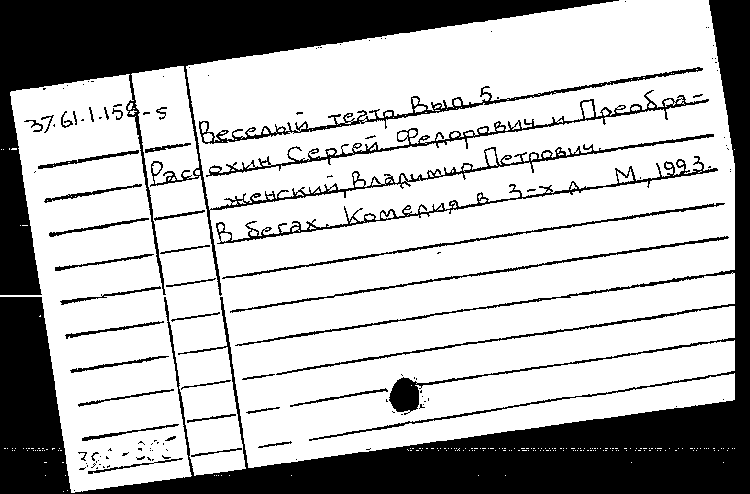 37.61.1.158-5
Веселый театр. Вып. 5.
Рассохин, Сергей Федорович и Преобра-
женский, Владимир Петрович.
В бегах. Комедия в 3-х д. М., 1993.